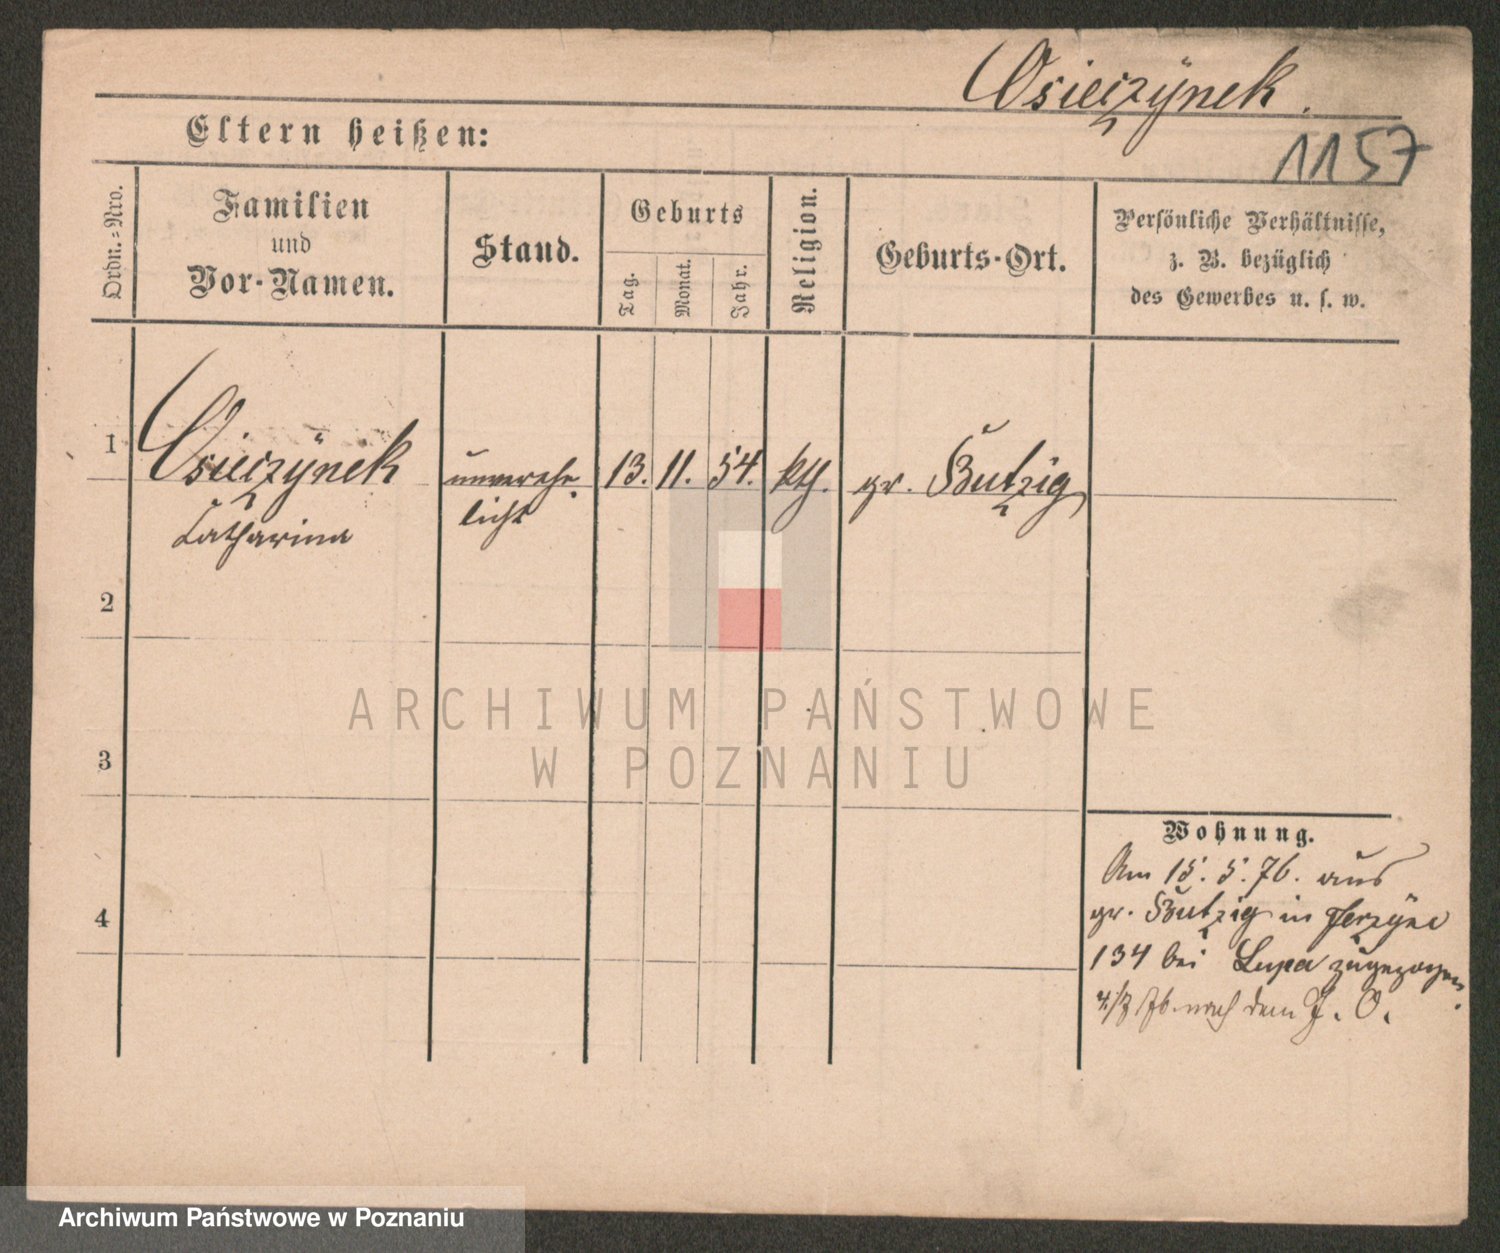 Osieczÿnek.
1157
Eltern heißen:
Ordn.-Nro.
Familien
und
Vor-Namen.
Stand.
Geburts
Tag.
Monat.
Jahr.
Religion.
Geburts-Ort.
Persönliche Verhältnisse,
z. B. bezüglich
des Gewerbes u. s. w.
1
Osieczÿnek unverehe- 13. 11. 54. kth. gr. Gutzig
Catharina licht
2
3
4
ARCHIWUM PAŃSTWOWE
W POZNANIU
Wohnung.
Am 15. 5. 76. aus
gr. Gutzig in
134 bei Lupa zugezogen.
76 nach dem J. O.
Archiwum Państwowe w Poznaniu